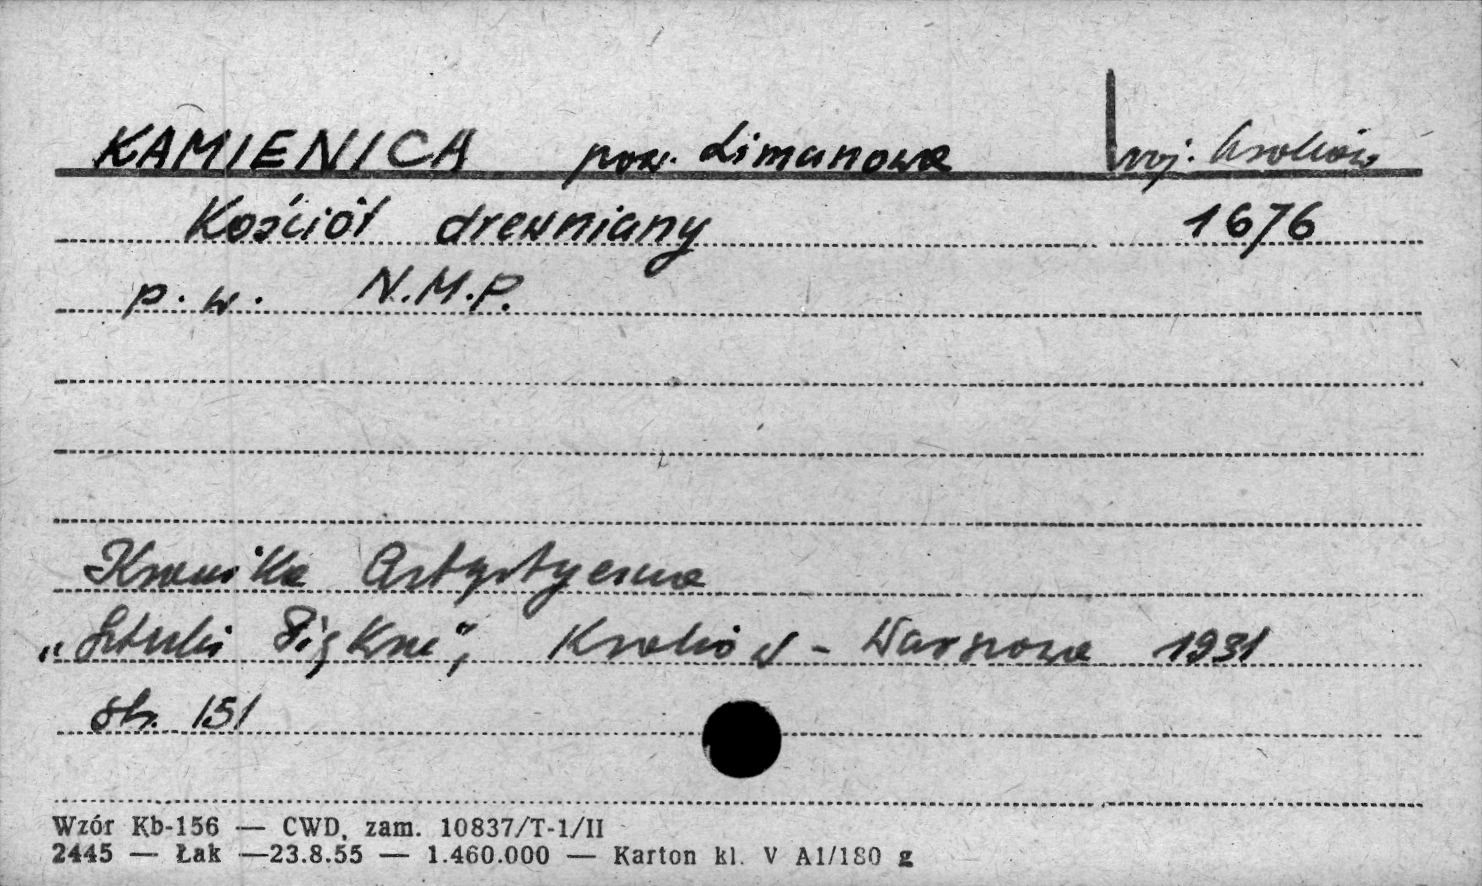 KAMIENICA pow. Limanowa woj. Kraków
Kościół drewniany 1676
p. w. N.M.P.
Kronika Artystyczna
„Sztuki Piękne", Kraków - Warszawa 1931
str. 151
Wzór Kb-156 — CWD, zam. 10837/T-1/II
2445 — Łak —23.8.55 — 1.460.000 — Karton kl. V A1/180 g